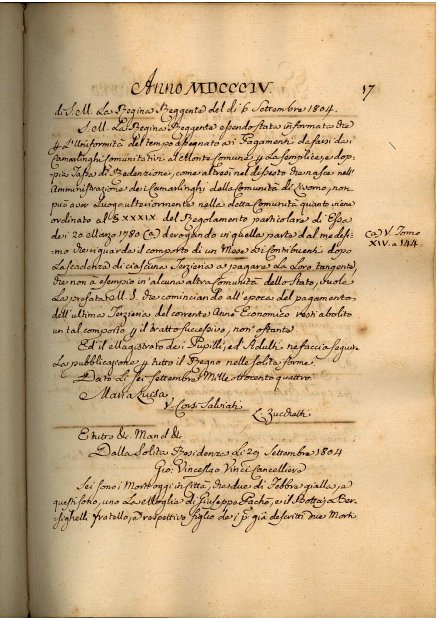 Anno MDCCCIV.
17
di S. M. La Regina Reggente del di 6 Settembre 1804.
S. M. La Regina Reggente essendo stata informata che
p L'Uniformità del tempo assegnato ai Pagamenti da farsi dai
Camarlinghi Comunitativi al Monte Comune p La semplice, e dop-
pia Tassa di Redenzione, come altresì nel disposto che nasce nell'
Amministrazione dei Camarlinghi della Comunità di Livorno, non
può aver Luogo ulteriormente nella detta Comunità quanto viene
ordinato al § XXXIX. del Regolamento particolare di Essa
de i 20 Marzo 1780 (a) derogando in quella parte dal medesi-
mo che riguarda il comporto di un Mese ai Contribuenti dopo
La scadenza di ciascuna Terzieria a pagare La Loro tangente,
che non à esempio in alcuna altra Comunità dello Stato, vuole
La prefata M. S. che cominciando all'epoca del pagamento
dell'ultima Terzieria del corrente Anno Economico resti abolito
un tal comporto p il tratto successivo, non ostante
Ed il Magistrato dei Pupilli, ed Adulti ne faccia seguire
La pubblicazione p tutto il Regno nelle solite forme.
Dato Li Sei Settembre Mille ottocento quattro
Maria Luisa
V. Cons. Salviati
L. Zuccheth
(a) V. Tomo
XIV. a 144
E tutto &c. Mand &c
Dalla Solita Residenza Li 29 Settembre 1804
Gio. Vinceslao Vinci Cancelliere
Sei sono i Morti oggi in Città, che due di Febbre gialla, e
questi sono, uno La Moglie di Giuseppe Pachò, e il Bottajo Ber-
sighelli fratello, e respettivo figlio de i p già descritti due Morti